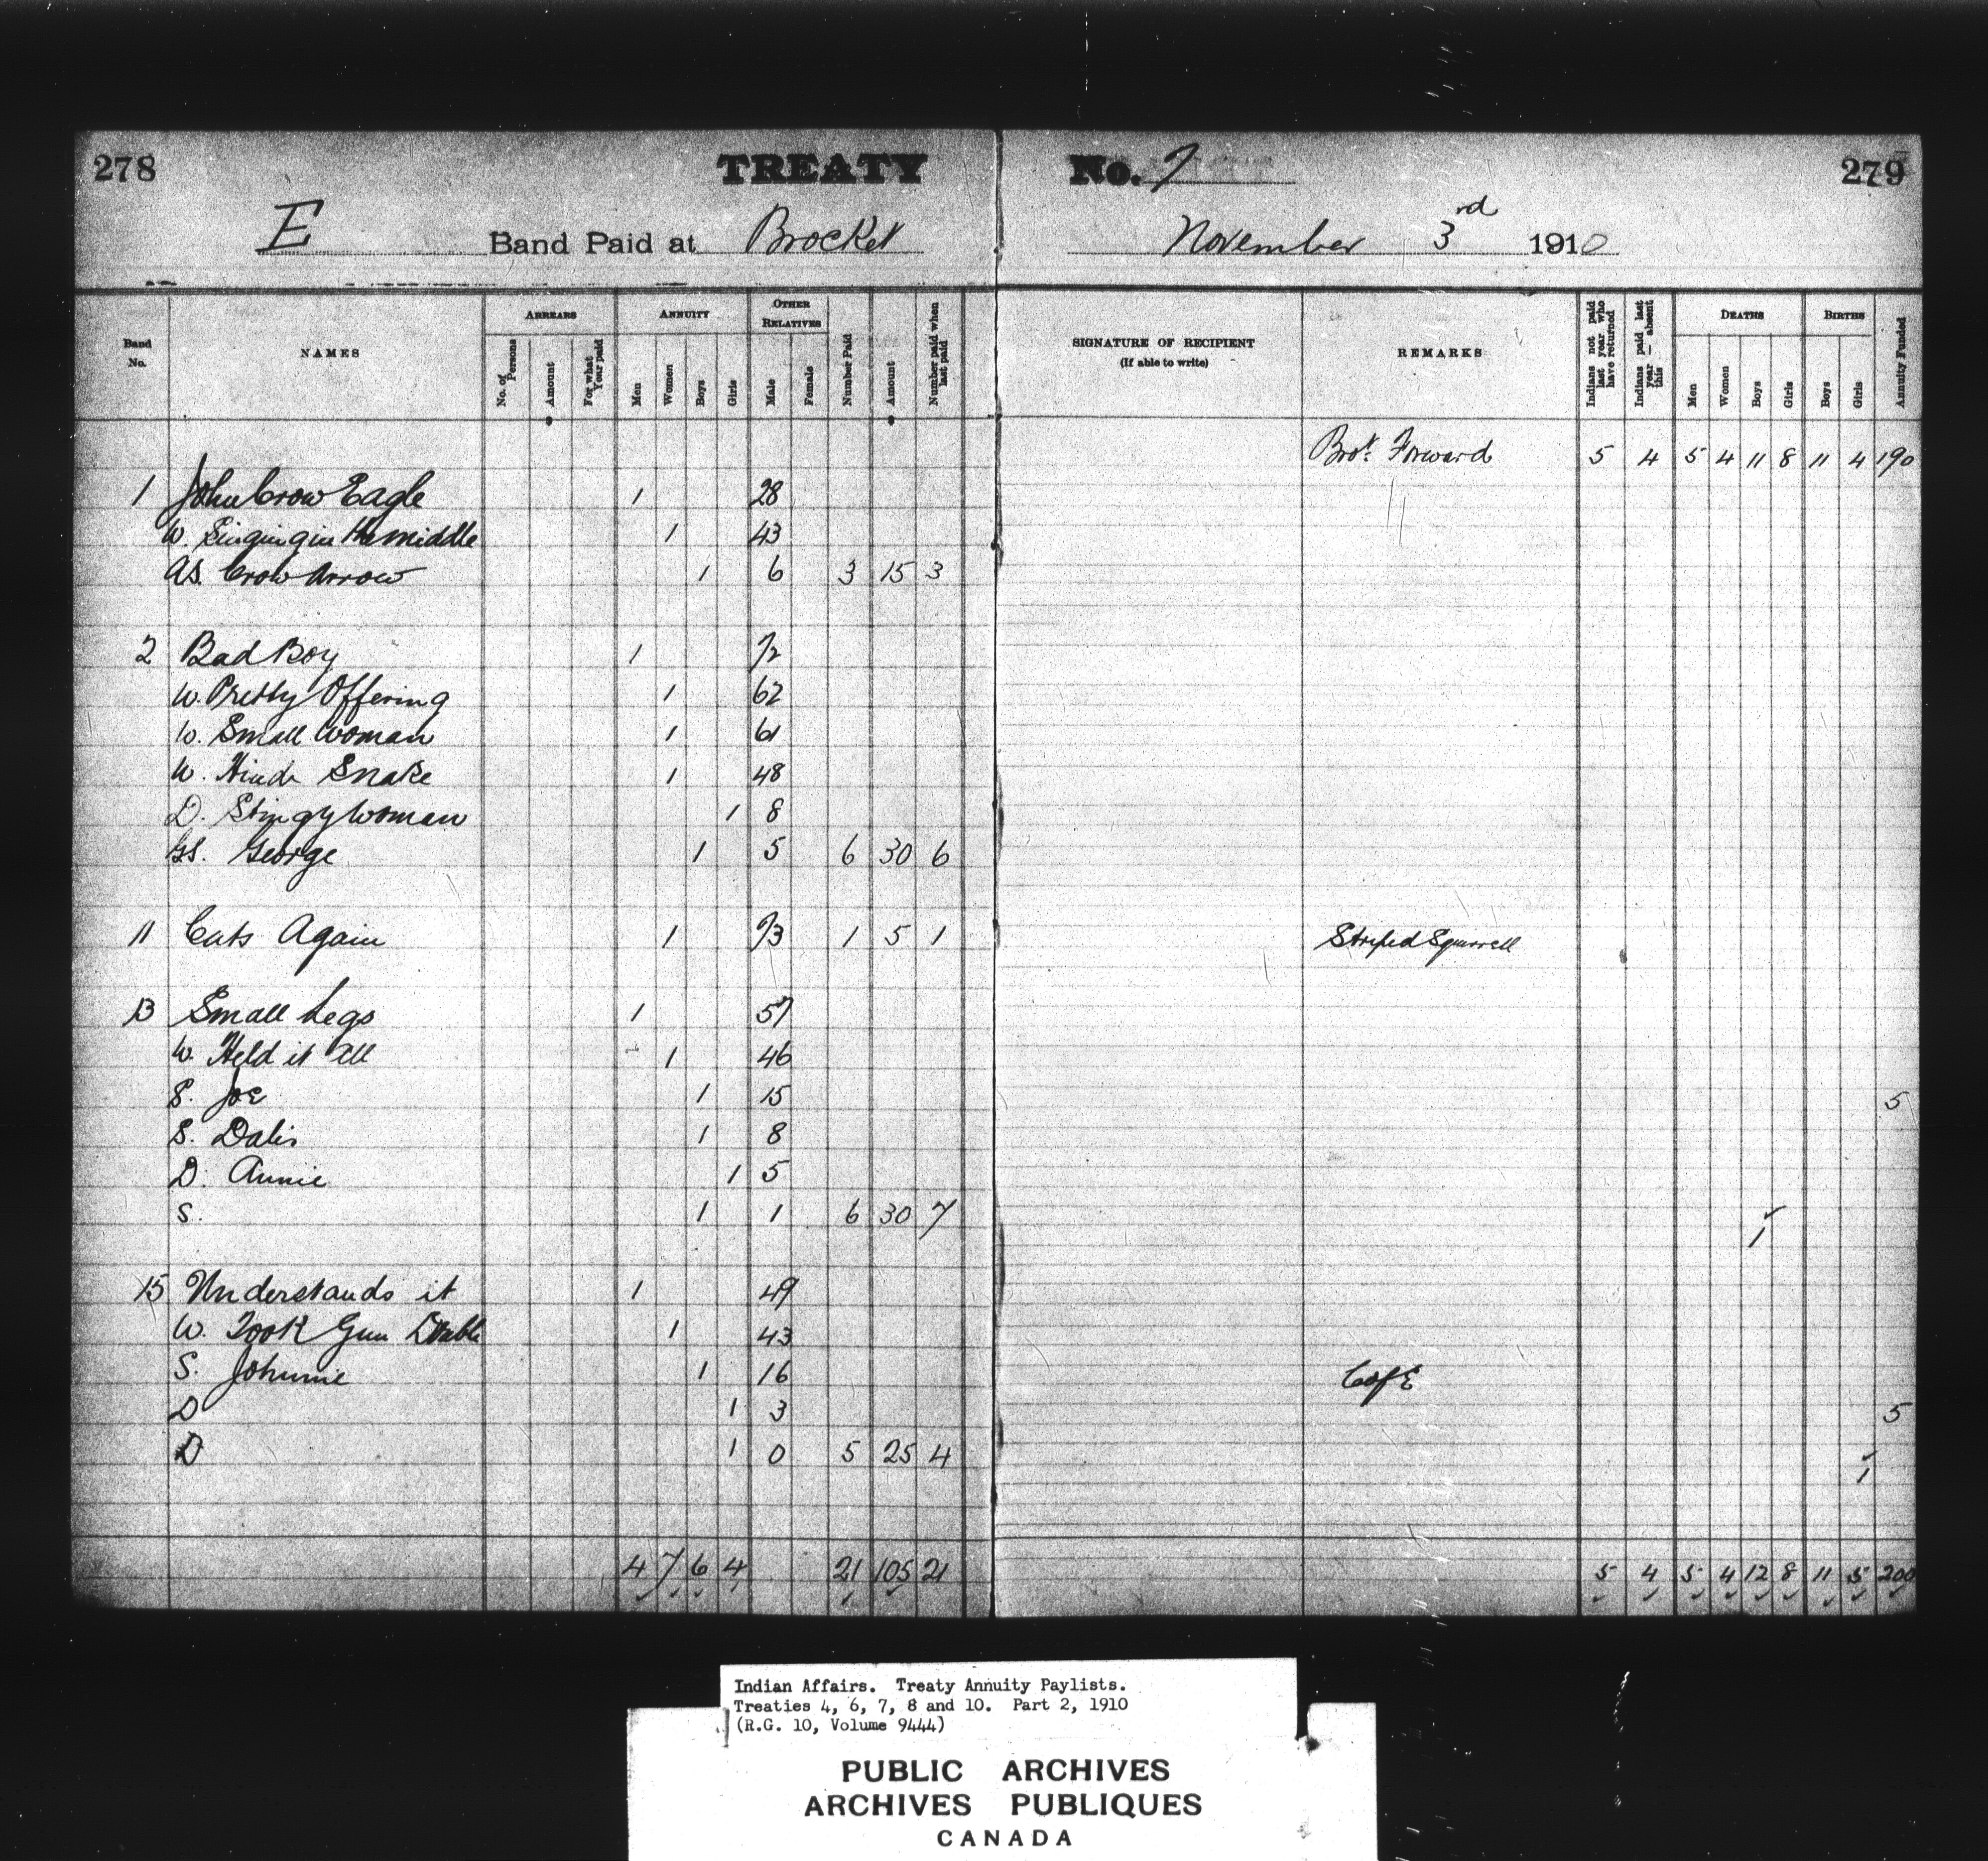 278 TREATY No. 7 279
E Band Paid at Brocket November 3rd 1910
Band No. NAMES ARREARS ANNUITY OTHER RELATIVES Number Paid Amount Number paid when last paid SIGNATURE OF RECIPIENT (If able to write) REMARKS Indians not paid last year who have returned Indians paid last year — absent this DEATHS BIRTHS Annuity Funded
No. of Persons Amount For what Year paid Men Women Boys Girls Male Female Men Women Boys Girls Boys Girls
Brot. Forward 5 4 5 4 11 8 11 4 190
1 John Crow Eagle 1 28
W. Singing in the middle 1 43
AS. Crow Arrow 1 6 3 15 3
2 Bad Boy 1 72
W. Pretty Offering 1 62
W. Small Woman 1 61
W. Hind Snake 1 48
D. Stingy Woman 1 8
GS. George 1 5 6 30 6
11 Cuts Again 1 73 1 5 1 Striped Squirrell
13 Small Legs 1 57
W. Held it all 1 46
S. Joe 1 15 5
S. 1 8
D. Annie 1 5
S. 1 1 6 30 7 1
15 Understands it 1 49
W. Took Gun Double 1 43
S. Johnnie 1 16 C of E
D 1 3 5
D 1 0 5 25 4 1
4 7 6 4 21 105 21 5 4 5 4 12 8 11 5 200
Indian Affairs. Treaty Annuity Paylists.
Treaties 4, 6, 7, 8 and 10. Part 2, 1910
(R.G. 10, Volume 9444)
PUBLIC ARCHIVES
ARCHIVES PUBLIQUES
CANADA